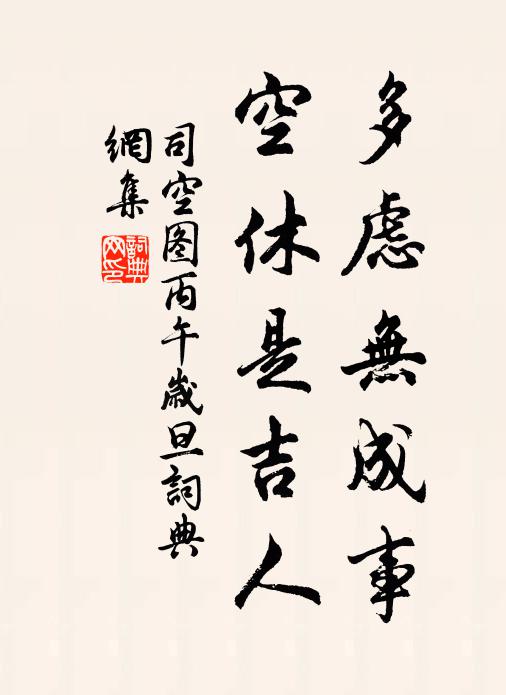 多慮無成事
空休是吉人
司空图丙午歲旦詞典
網集
詞典网印